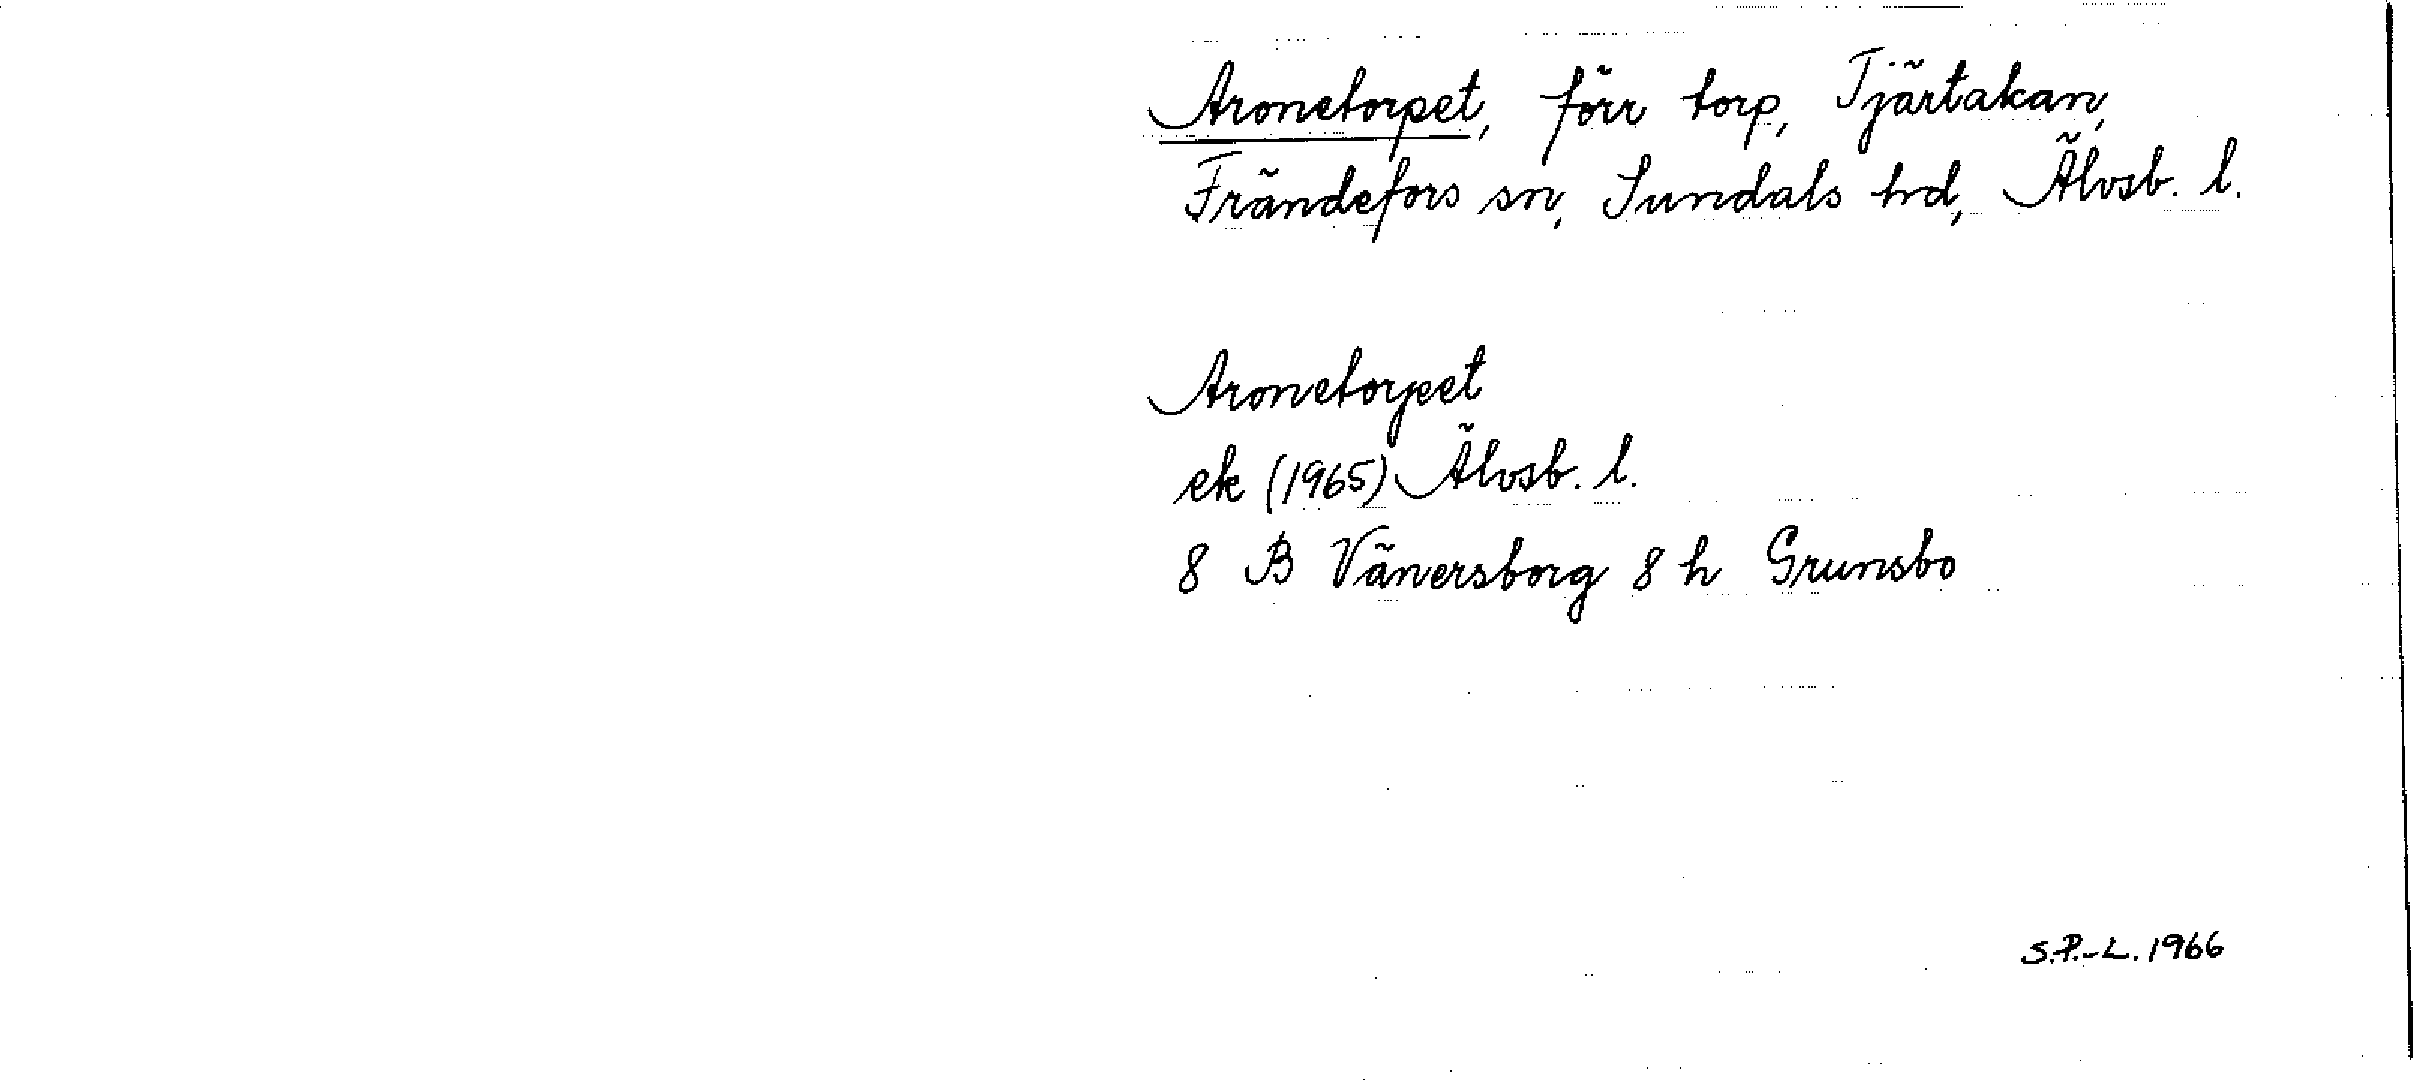 Aronetorpet, förr torp, Tjärtakan,
Frändefors sn, Sundals hd, Älvsb. l.
Aronetorpet
ek (1965) Älvsb. l.
8 B Vänersborg 8 h Grunsbo
S.P.-L. 1966